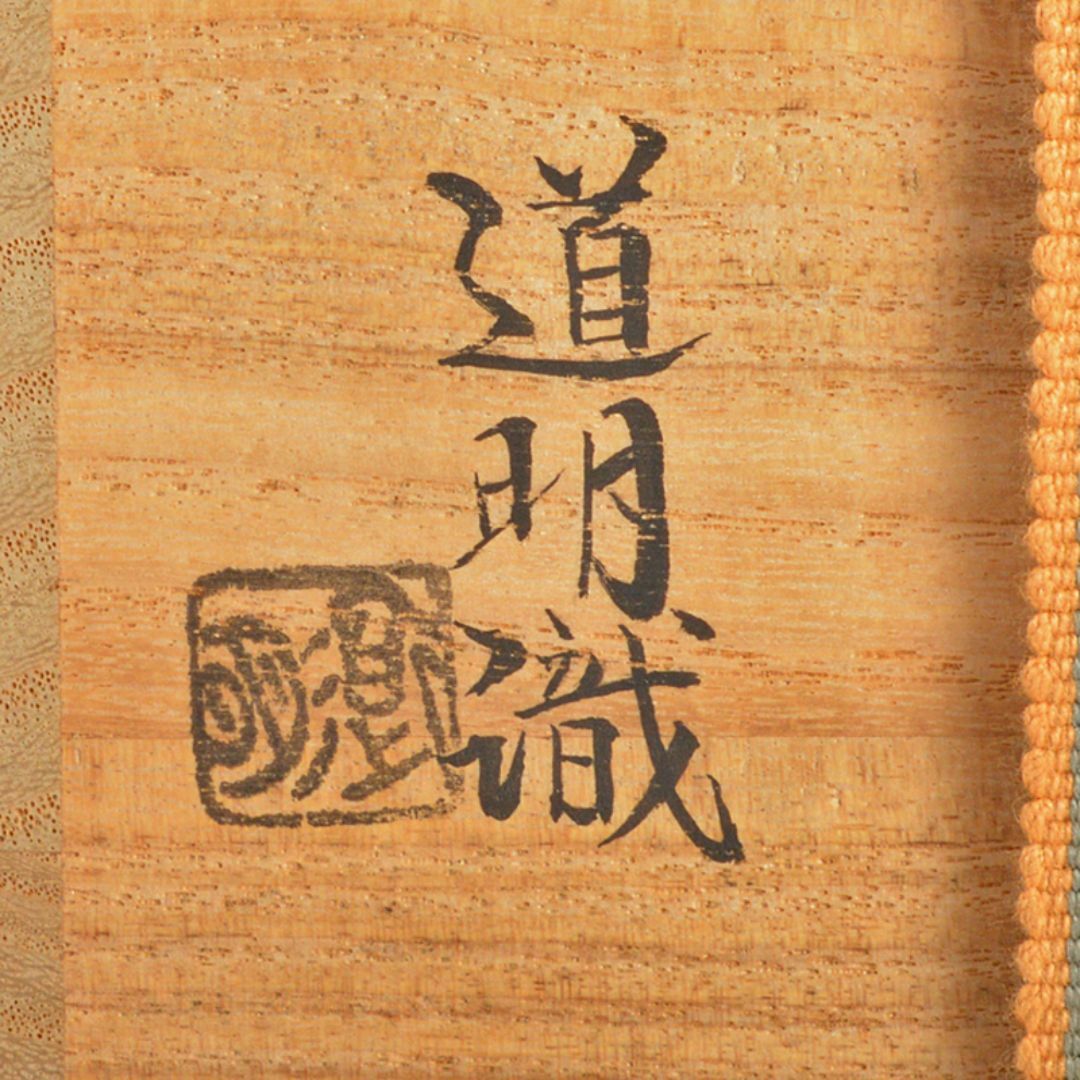 道明識